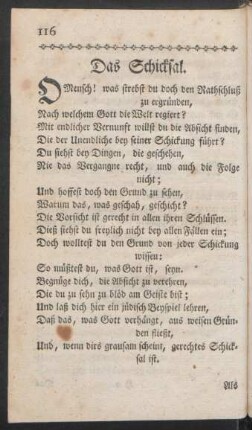 116
Das Schicksal.
O Mensch! was strebst du doch den Rathschluß
zu ergründen,
Nach welchem Gott die Welt regiert?
Mit endlicher Vernunft willst du die Absicht finden,
Die der Unendliche bey seiner Schickung führt?
Du siehst bey Dingen, die geschehen,
Nie das Vergangne recht, und auch die Folge
nicht;
Und hoffest doch den Grund zu sehen,
Warum das, was geschah, geschicht?
Die Vorsicht ist gerecht in allen ihren Schlüssen.
Dieß siehst du freylich nicht bey allen Fällen ein;
Doch wolltest du den Grund von jeder Schickung
wissen:
So müßtest du, was Gott ist, seyn.
Begnüge dich, die Absicht zu verehren,
Die du zu sehn zu blöd am Geiste bist;
Und laß dich hier ein jüdisch Beyspiel lehren,
Daß das, was Gott verhängt, aus weisen Grün-
den fließt,
Und, wenn dirs grausam scheint, gerechtes Schick-
sal ist.
Als